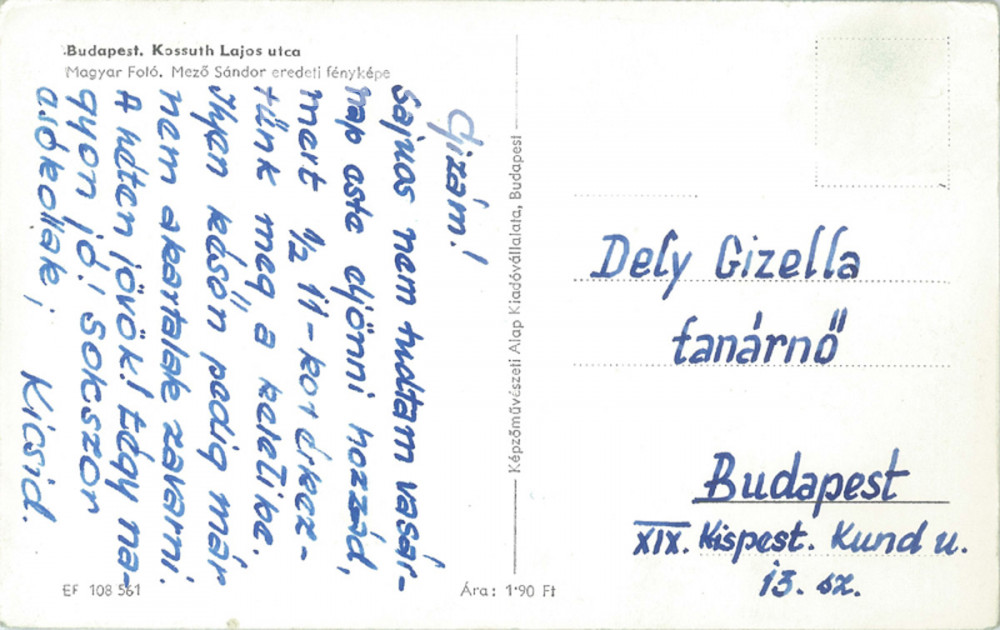 Budapest. Kossuth Lajos utca
Magyar Fotó. Mező Sándor eredeti fényképe
Gizám!
Sajnos nem tudtam vasár-
nap este eljönni hozzád,
mert 1/2 11-kor érkez-
tünk meg a keletibe.
Ilyen későn pedig már
nem akartalak zavarni.
A héten jövök! Légy na-
gyon jó! Sokszor
csókollak;
Kicsid.
EF 108 561
Ára: 1·90 Ft
Képzőművészeti Alap Kiadóvállalata, Budapest
Dely Gizella
tanárnő
Budapest
XIX. Kispest. Kund u.
13. sz.